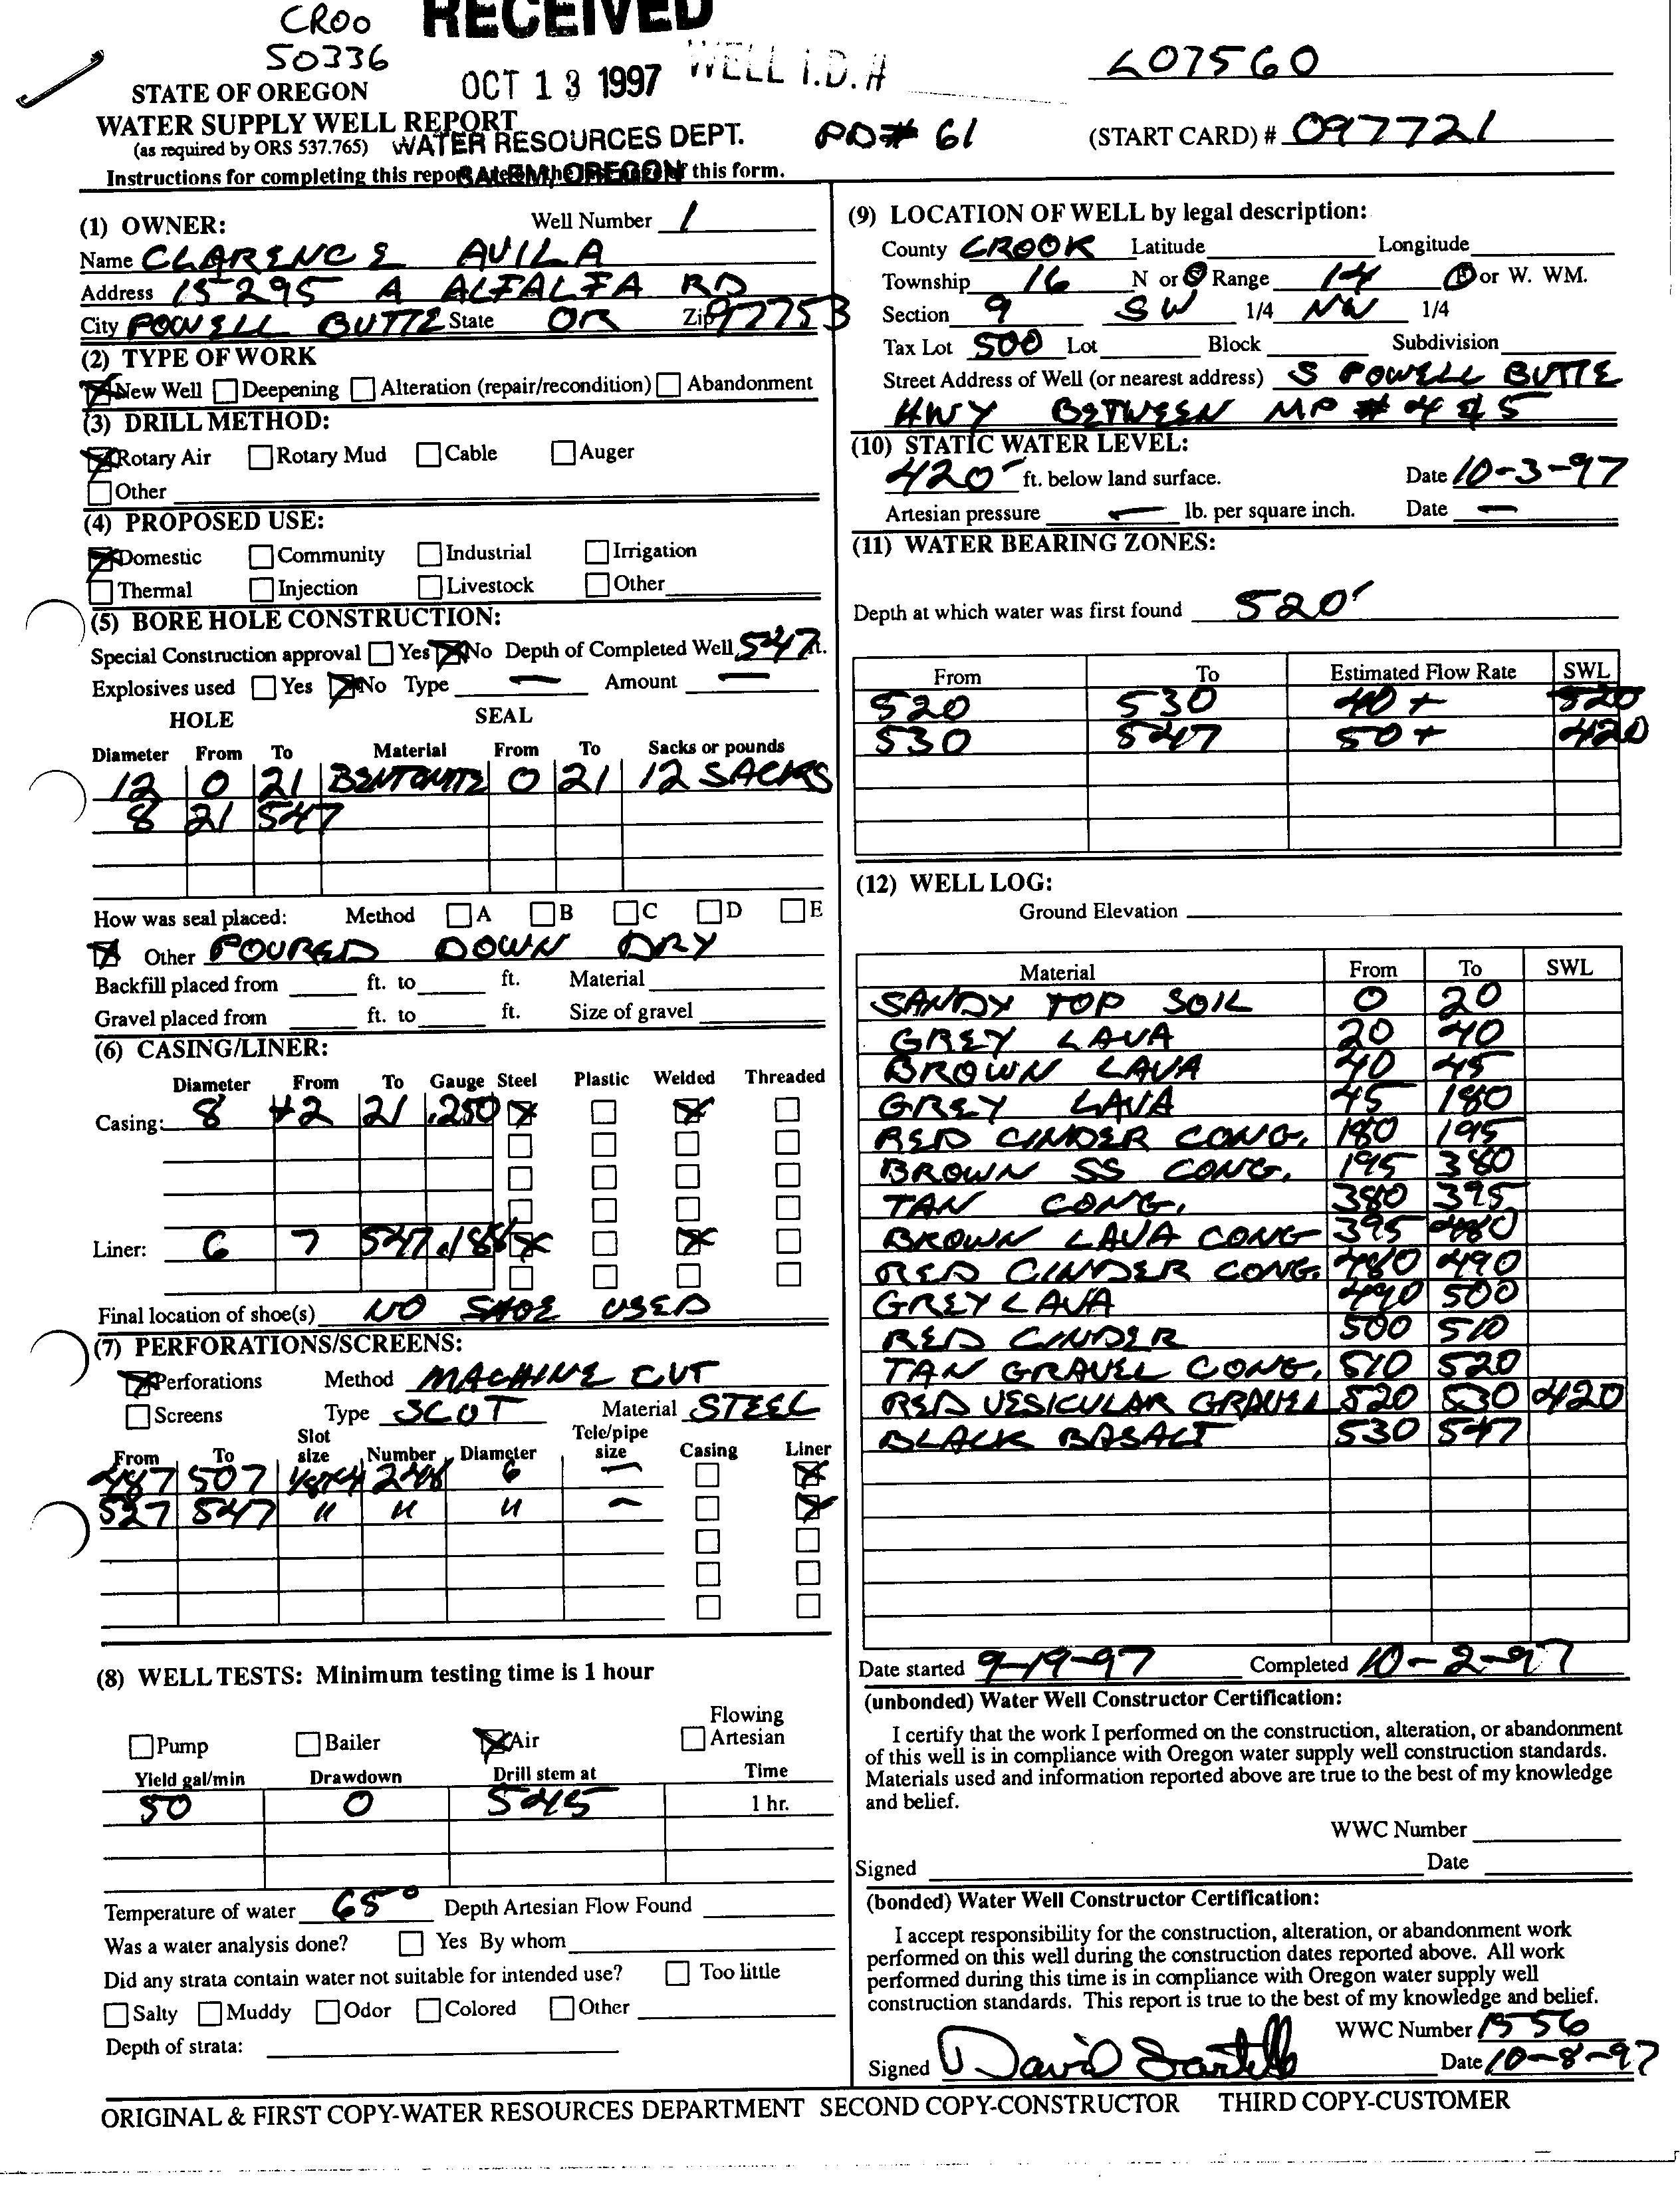 CROO
50336
RECEIVED
OCT 13 1997
WELL I.D. #
L07560
STATE OF OREGON
WATER SUPPLY WELL REPORT
(as required by ORS 537.765)
WATER RESOURCES DEPT.
SALEM, OREGON
PD# 61
(START CARD) # 097721
Instructions for completing this report this form.
(1) OWNER: Well Number 1
Name CLARENCE AVILA
Address 15295 A ALFALFA RD
City POWELL BUTTE State OR Zip 97753
(2) TYPE OF WORK
New Well Deepening Alteration (repair/recondition) Abandonment
(3) DRILL METHOD:
Rotary Air Rotary Mud Cable Auger
Other
(4) PROPOSED USE:
Domestic Community Industrial Irrigation
Thermal Injection Livestock Other
(5) BORE HOLE CONSTRUCTION:
Special Construction approval Yes No Depth of Completed Well 547 ft.
Explosives used Yes No Type — Amount —
HOLE SEAL
Diameter From To Material From To Sacks or pounds
12 0 21 BENTONITE 0 21 12 SACKS
8 21 547
How was seal placed: Method A B C D E
Other POURED DOWN DRY
Backfill placed from ft. to ft. Material
Gravel placed from ft. to ft. Size of gravel
(6) CASING/LINER:
Diameter From To Gauge Steel Plastic Welded Threaded
Casing: 8 +2 21 .250
Liner: 6 7 547 .188
Final location of shoe(s) NO SHOE USED
(7) PERFORATIONS/SCREENS:
Perforations Method MACHINE CUT
Screens Type SLOT Material STEEL
From To Slot size Number Diameter Tele/pipe size Casing Liner
487 507 1/8x4 248 6 —
527 547 " " " —
(8) WELL TESTS: Minimum testing time is 1 hour
Pump Bailer Air Flowing Artesian
Yield gal/min Drawdown Drill stem at Time
50 0 545 1 hr.
Temperature of water 65° Depth Artesian Flow Found
Was a water analysis done? Yes By whom
Did any strata contain water not suitable for intended use? Too little
Salty Muddy Odor Colored Other
Depth of strata:
(9) LOCATION OF WELL by legal description:
County CROOK Latitude Longitude
Township 16 N or S Range 14 E or W. WM.
Section 9 SW 1/4 NW 1/4
Tax Lot 500 Lot Block Subdivision
Street Address of Well (or nearest address) S POWELL BUTTE
HWY BETWEEN MP # 4 & 5
(10) STATIC WATER LEVEL:
420' ft. below land surface. Date 10-3-97
Artesian pressure — lb. per square inch. Date —
(11) WATER BEARING ZONES:
Depth at which water was first found 520'
From To Estimated Flow Rate SWL
520 530 40+ 520
530 547 50+ 420
(12) WELL LOG:
Ground Elevation
Material From To SWL
SANDY TOP SOIL 0 20
GREY LAVA 20 40
BROWN LAVA 40 45
GREY LAVA 45 180
RED CINDER CONG. 180 195
BROWN SS CONG. 195 380
TAN CONG. 380 395
BROWN LAVA CONG 395 480
RED CINDER CONG. 480 490
GREY LAVA 490 500
RED CINDER 500 510
TAN GRAVEL CONG. 510 520
RED VESICULAR GRAVEL 520 530 420
BLACK BASALT 530 547
Date started 9-19-97 Completed 10-2-97
(unbonded) Water Well Constructor Certification:
I certify that the work I performed on the construction, alteration, or abandonment
of this well is in compliance with Oregon water supply well construction standards.
Materials used and information reported above are true to the best of my knowledge
and belief.
WWC Number
Signed Date
(bonded) Water Well Constructor Certification:
I accept responsibility for the construction, alteration, or abandonment work
performed on this well during the construction dates reported above. All work
performed during this time is in compliance with Oregon water supply well
construction standards. This report is true to the best of my knowledge and belief.
WWC Number 1556
Signed David Date 10-8-97
ORIGINAL & FIRST COPY-WATER RESOURCES DEPARTMENT SECOND COPY-CONSTRUCTOR THIRD COPY-CUSTOMER